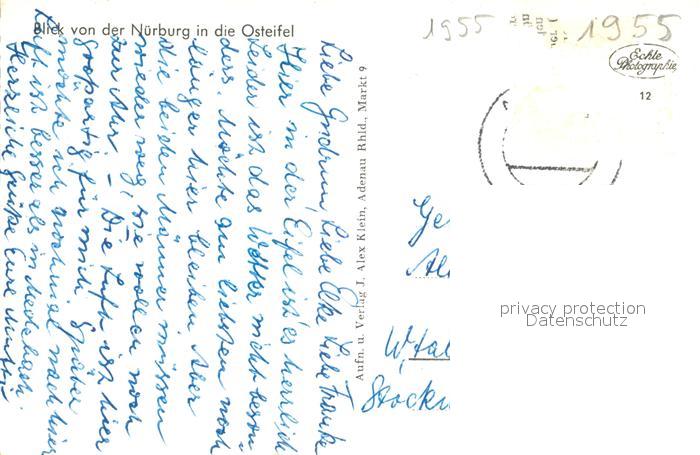 Blick von der Nürburg in die Osteifel
1955
1955
Echte Photographie
12
Liebe Gudrun, Liebe Elke Liebe Frauke
Hier in der Eifel ist es herrlich
Leider ist das Wetter nicht beson
ders. Möchte am liebsten noch
länger hier bleiben. Aber
die beiden Männer müssen
wieder weg, wir wollen noch
zur Ahr. – Die Luft ist hier
großartig für mich. Später
möchte ich noch mal nach hier
Luft ist besser als in Medebach.
Herzliche Grüße Eure Mutti
Aufn. u. Verlag J. Alex Klein, Adenau Rhld., Markt 9
Ge
W,tal
Stockm
privacy protection
Datenschutz